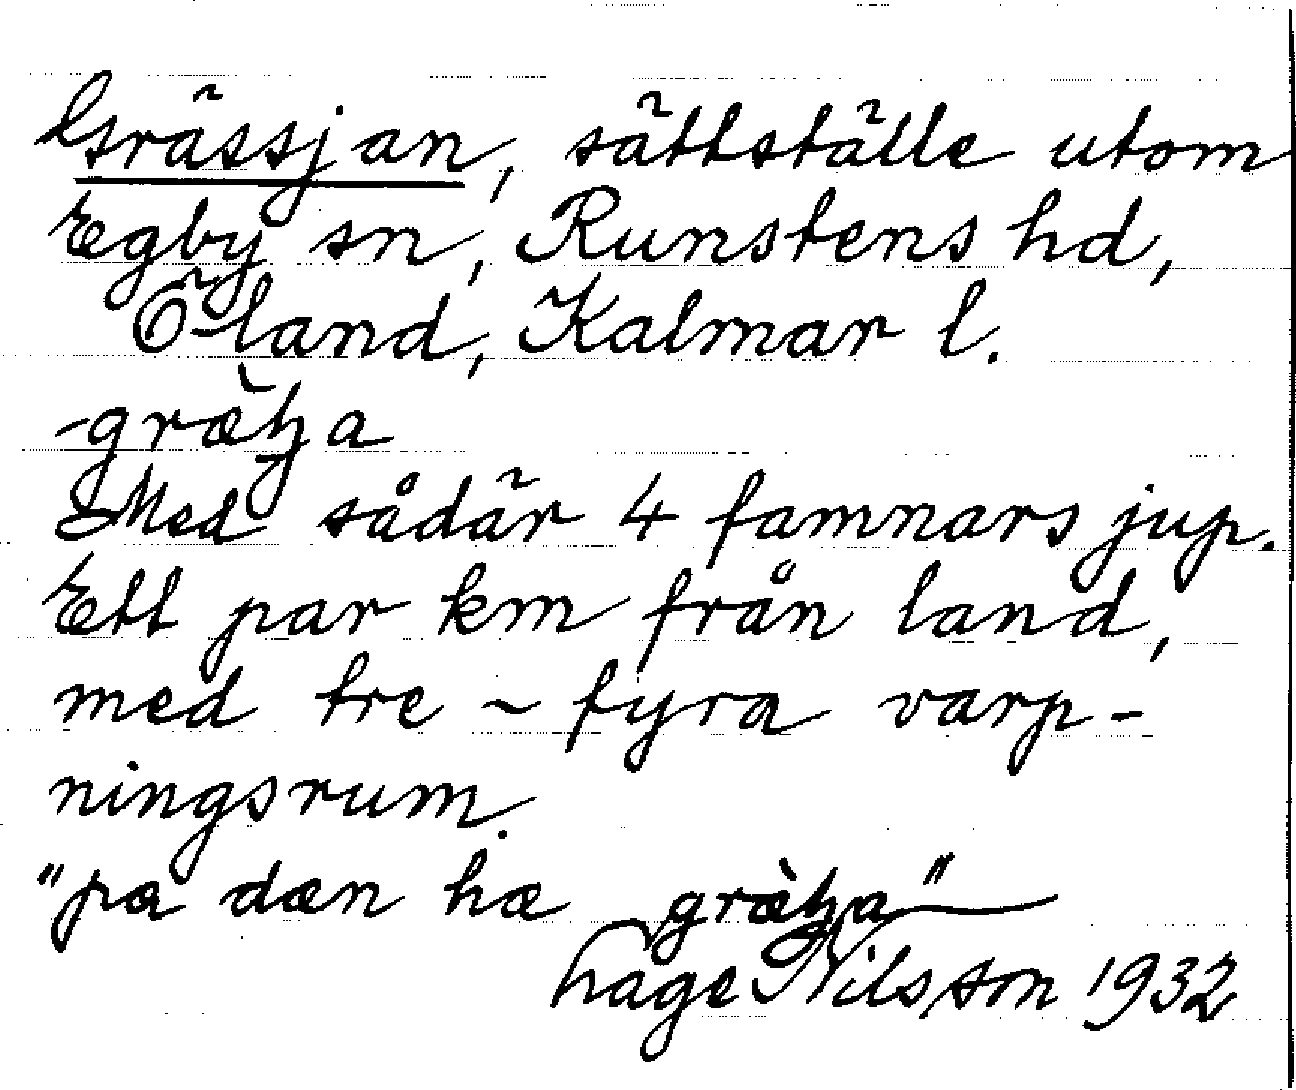 Grässjan, sättställe utom
Egby sn, Runstens hd,
Öland, Kalmar l.
-græ̀ꜧa
Med sådär 4 famnars jup.
Ett par km från land,
med tre ~ fyra varp-
ningsrum.
"pa dæn hæ græ̀ꜧa"
hage Nilsson 1932